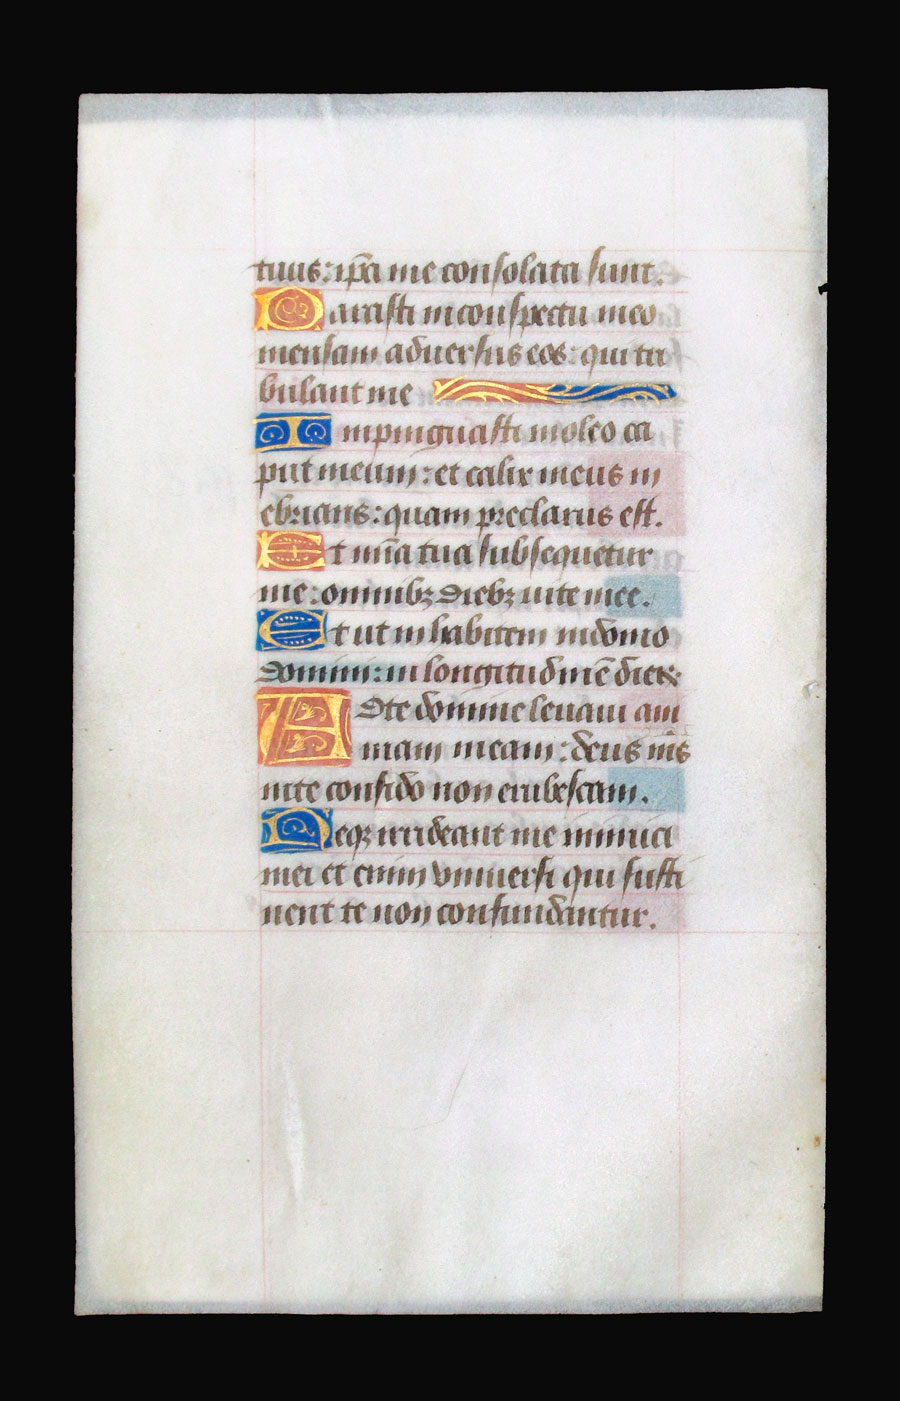 tuus: ip̃a me consolata sunt.
Parasti in conspectu meo
mensam aduersus eos: qui tri
bulant me
Inpinguasti in oleo ca
put meum: et calix meus in
ebrians: quam preclarus est.
Et mĩa tua subsequetur
me: omnibꝫ diebꝫ uite mee.
Et ut inhabitem in domo
domini: in longitudinẽ dieꝝ
Adte domine leuaui ani
mam meam: deus m̃s
in te confido non erubescam.
Neqꝫ irrideant me inimici
mei et enim vniuersi qui susti
nent te non confundantur.